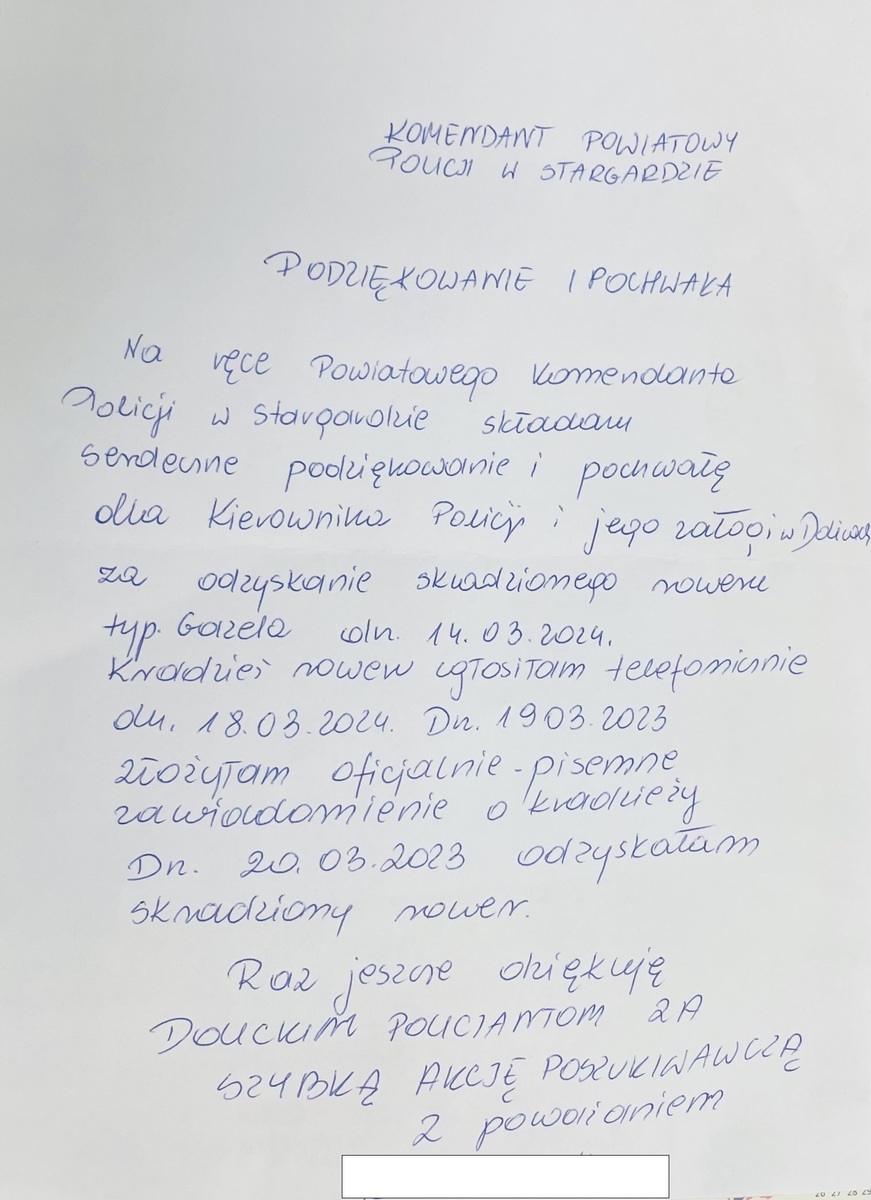 KOMENDANT POWIATOWY
POLICJI W STARGARDZIE
PODZIĘKOWANIE I POCHWAŁA
Na ręce Powiatowego Komendanta
Policji w Stargardzie składam
serdeczne podziękowanie i pochwałę
dla Kierownika Policji i jego załogi w Dolicach
za odzyskanie skradzionego roweru
typ. Gazela dn. 14.03.2024.
Kradzież roweru zgłosiłam telefonicznie
dn. 18.03.2024. Dn. 19 03.2023
złożyłam oficjalnie - pisemne
zawiadomienie o kradzieży
Dn. 20.03.2023 odzyskałam
skradziony rower.
Raz jeszcze dziękuję
DOLICKIM POLICJANTOM ZA
SZYBKĄ AKCJĘ POSZUKIWAWCZĄ
Z poważaniem
26 27 28 29